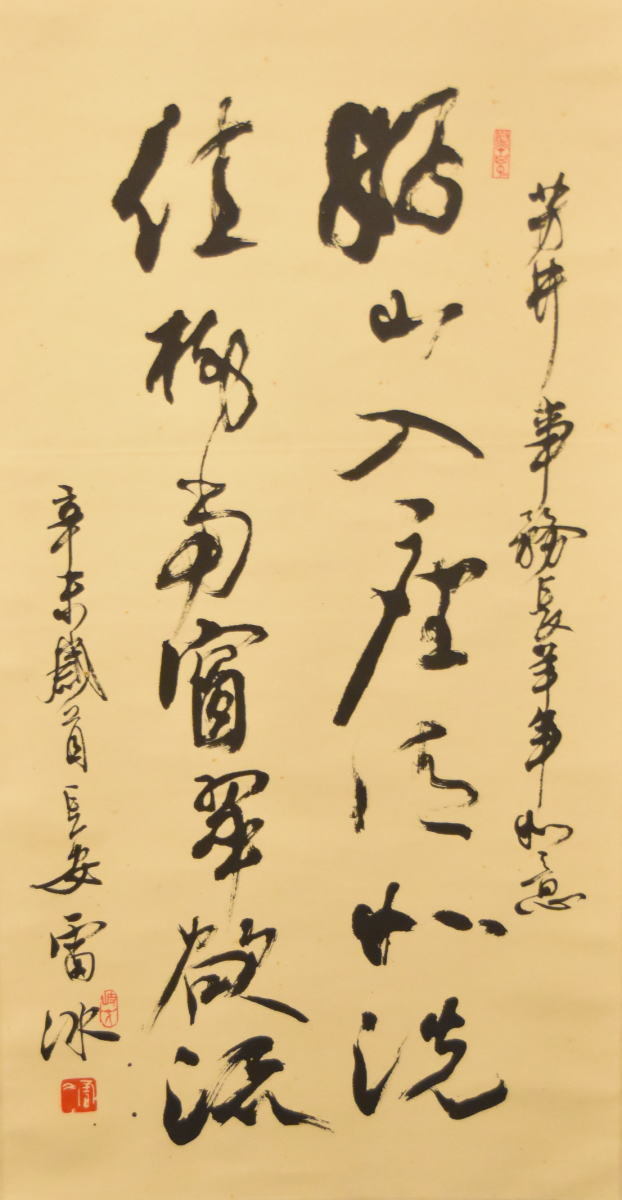 芳井事務長羊年如意
好山入座清如洗
佳樹當窗翠欲流
辛未歲首長安雷冰